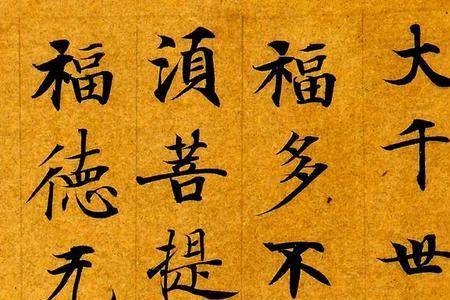 大千世
福多不
須菩提
福德无